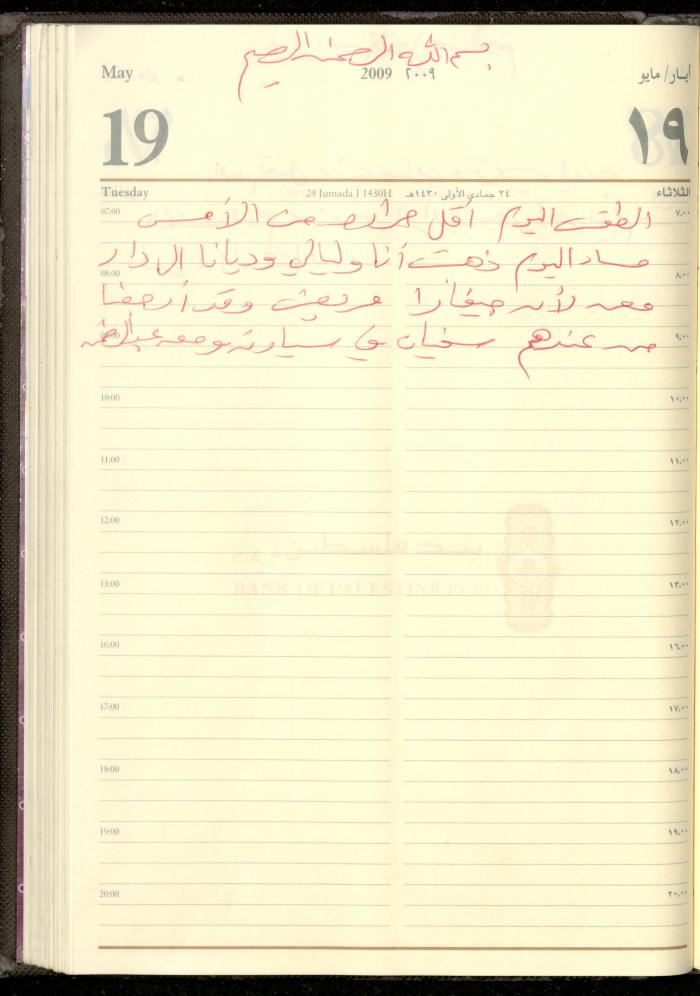 بسم الله الرحمن الرحيم
May 2009 ٢٠٠٩ أيار/ مايو
19 ١٩
Tuesday 24 Jumada I 1430H ٢٤ جمادى الأولى ١٤٣٠هـ الثلاثاء
07:00 ٧,٠٠
الطقس اليوم أقل حرارة من الأمس
مساء اليوم ذهبت أنا وليالي وديانا الى دار
08:00 ٨,٠٠
معن لأن جيفارا مريض وقد أرجعنا
09:00 ٩,٠٠
من عندهم سفيان في سيارته ومعه
10:00 ١٠,٠٠
11:00 ١١,٠٠
12:00 ١٢,٠٠
بنك فلسطين
BANK OF PALESTINE PLC
13:00 ١٣,٠٠
16:00 ١٦,٠٠
17:00 ١٧,٠٠
18:00 ١٨,٠٠
19:00 ١٩,٠٠
20:00 ٢٠,٠٠